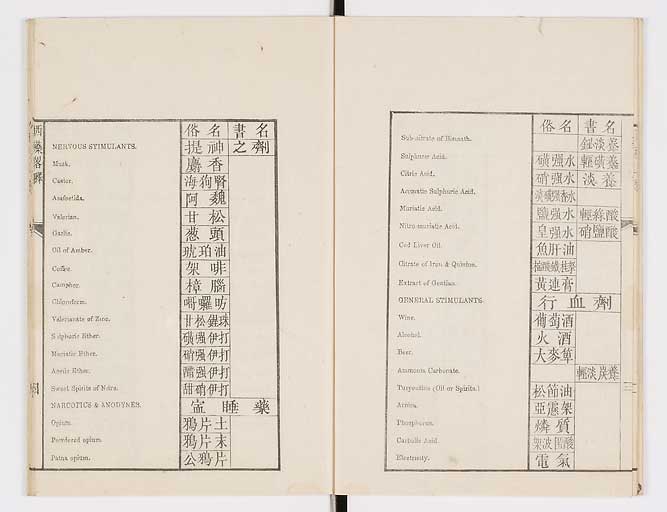 俗名 書名
Sub-nitrate of Bismuth. 鉍淡養
Sulphuric Acid. 磺强水 輕磺養
Citric Acid. 硝强水 淡養
Aromatic Sulphuric Acid.
Muriatic Acid. 鹽强水
Nitro-muriatic Acid. 皇强水 硝鹽酸
Cod Liver Oil. 魚肝油
Citrate of Iron & Quinine.
Extract of Gentian. 黃連膏
GENERAL STIMULANTS. 行血劑
Wine. 葡萄酒
Alcohol. 火酒
Beer. 大麥
Ammonia Carbonate. 輕淡炭養
Turpentine (Oil or Spirits.) 松節油
Arnica.
Phosphorus. 燐質
Carbolic Acid.
Electricity. 電氣
西藥畧釋
俗名 書名
NERVOUS STIMULANTS. 提神之劑
Musk. 麝香
Castor. 海狗腎
Asafoetida. 阿魏
Valerian. 甘松
Garlic. 葱頭
Oil of Amber. 琥珀油
Coffee. 架啡
Camphor. 樟腦
Chloroform.
Valerianate of Zinc. 甘松
Sulphuric Ether. 磺强伊打
Muriatic Ether. 硝强伊打
Acetic Ether. 醋强伊打
Sweet Spirits of Nitre. 甜硝伊打
NARCOTICS & ANODYNES. 寍睡藥
Opium. 鴉片土
Powdered opium 鴉片末
Patna opium. 公鴉片